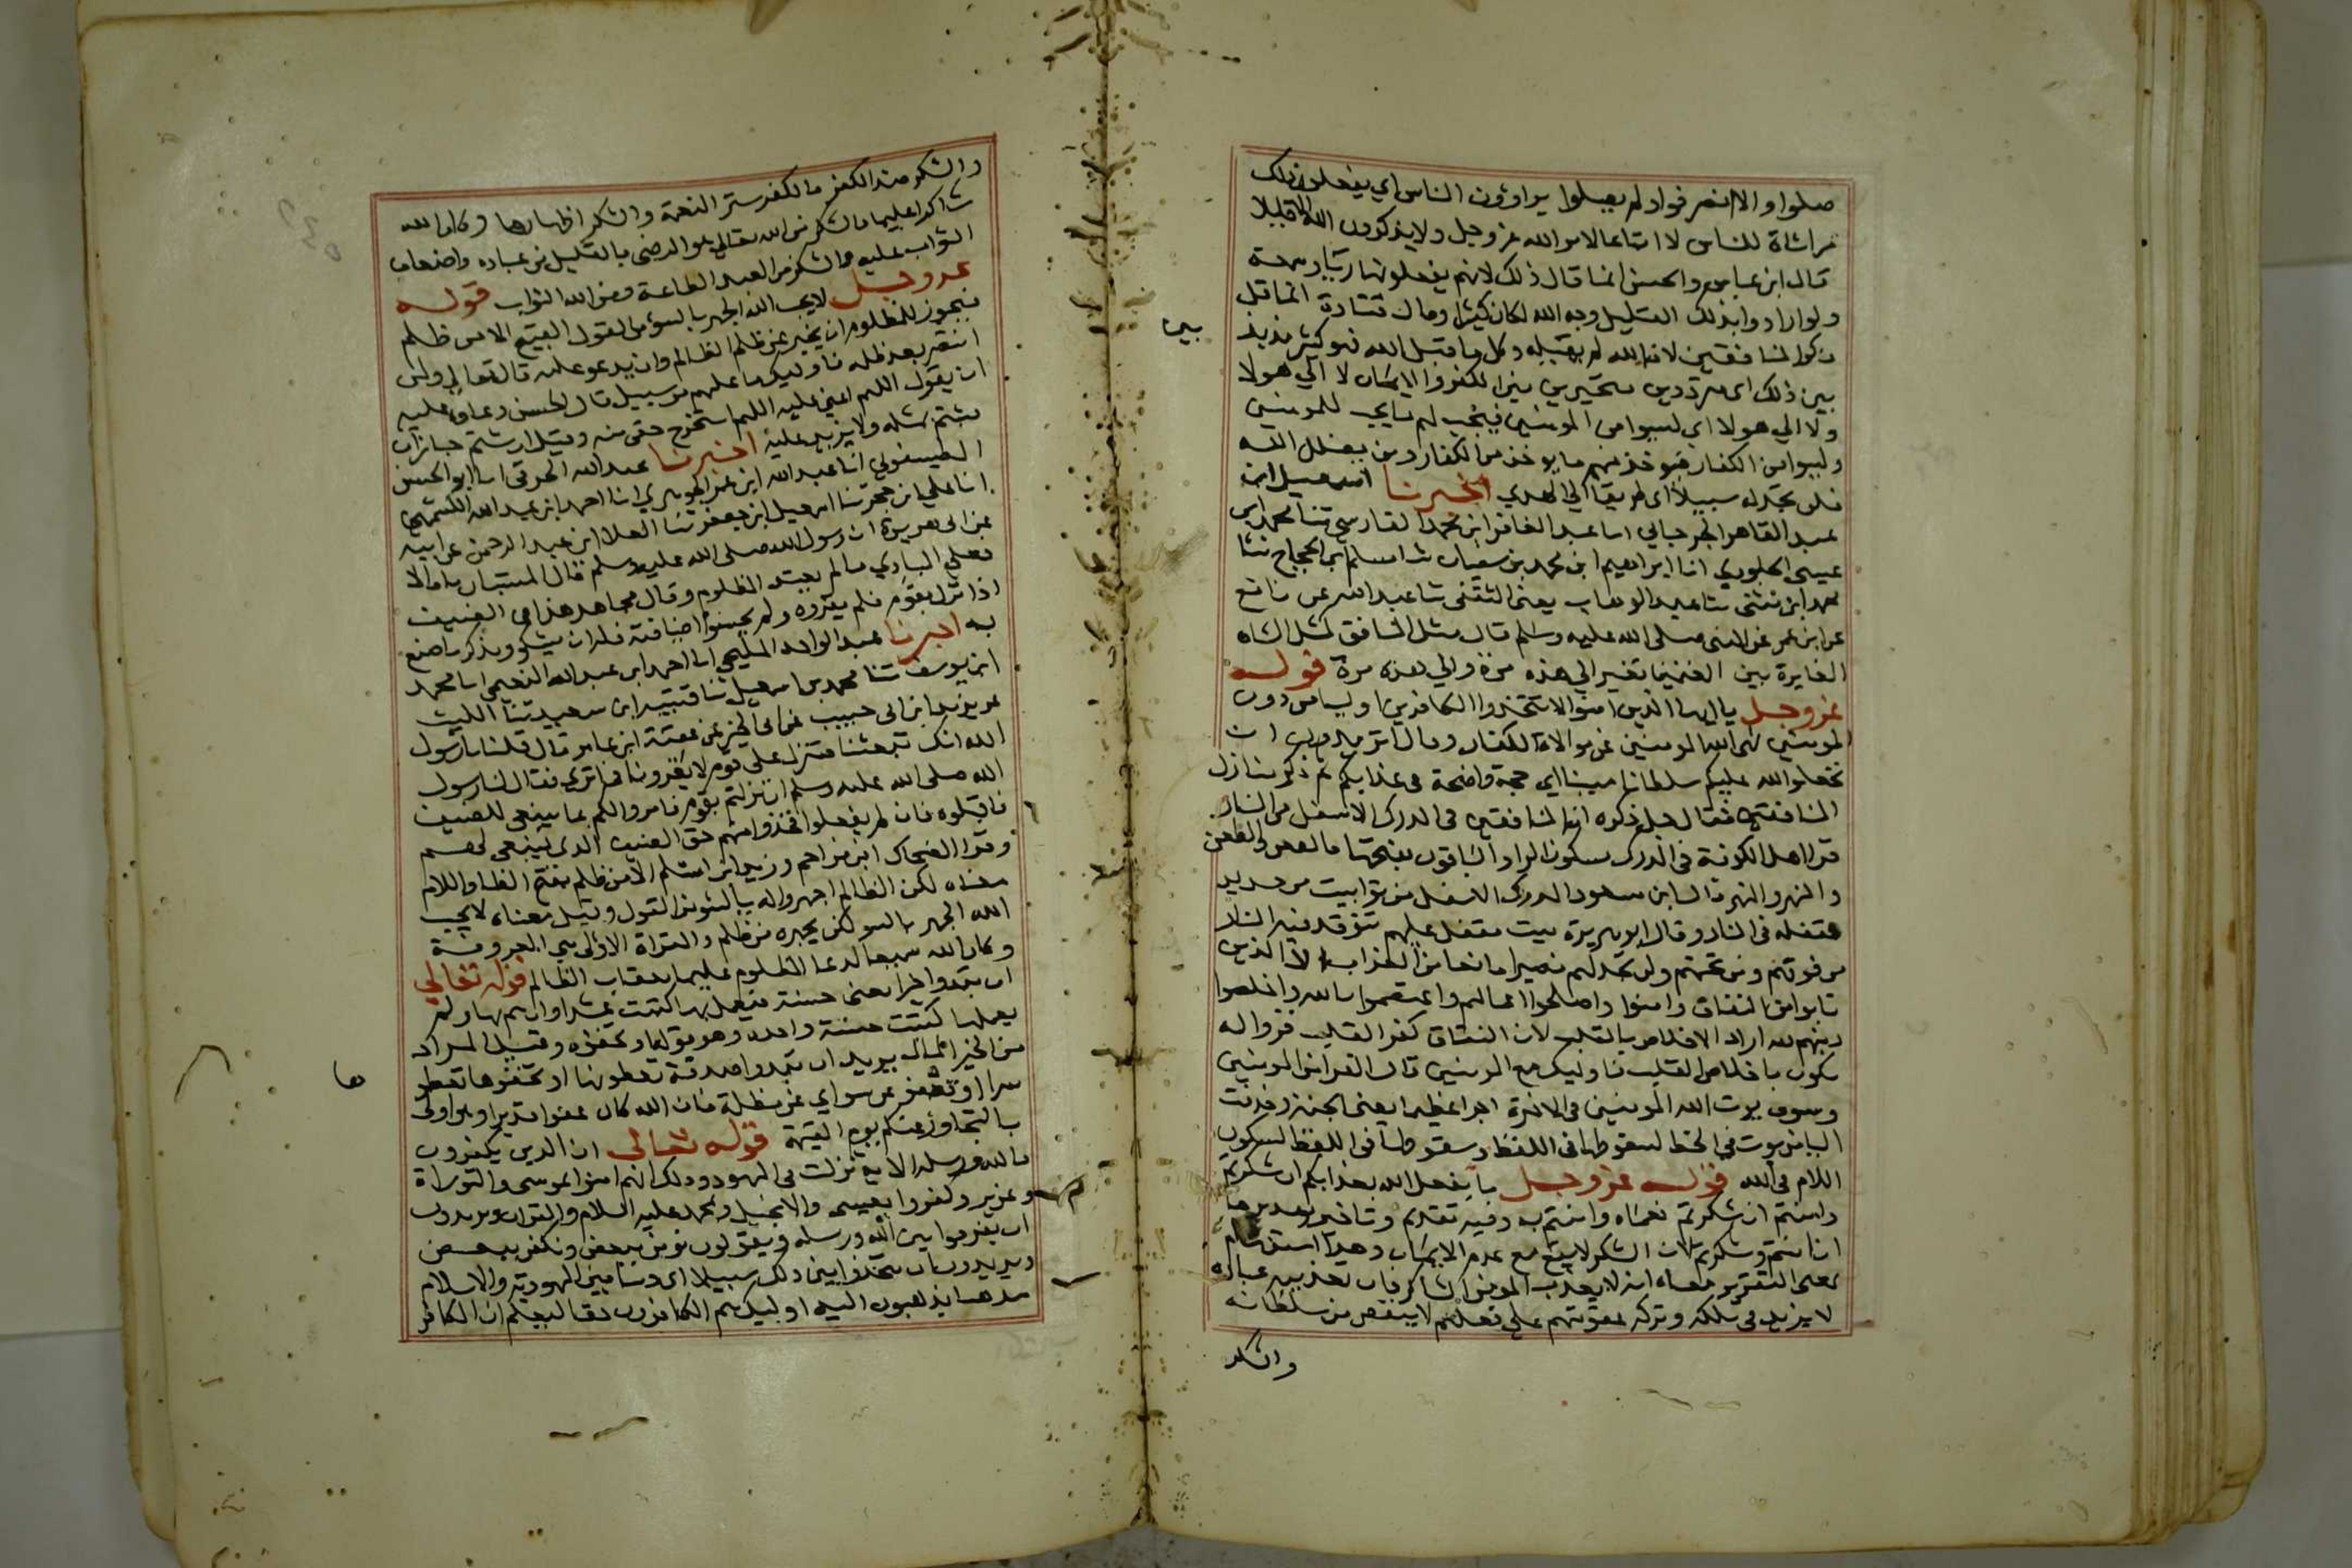 صلوا والا انصرفوا ولم يصلوا يراؤون الناس اي يفعلون ذلك
مراءاة للناس لا اتباعا لامر الله عز وجل ولا يذكرون الله الا قليلا
قال ابن عباس والحسن انما قال ذلك لانهم يفعلونها رياء وسمعة
ولو ارادوا بذلك القليل وجه الله لكان كثيرا وقال قتادة انما قل
ذكر المنافقين لان الله لم يقبله وكل ما قبل الله فهو كثير مذبذبين
بين ذلك اي مترددين متحيرين بين الكفر والايمان لا الي هولا
ولا الي هولا اي ليسوا من المومنين فيجب لهم ما يجب للمومنين
وليسوا من الكفار فيوخذ منهم ما يوخذ من الكفار ومن يضلل الله
فلن تجد له سبيلا اي طريقا الي الهدي اخبرنا اسمعيل ابن
عبد القاهر الجرجاني انا عبد الغافر ابن محمد الفارسي ثنا محمد ابن
عيسي الجلودي انا ابراهيم ابن محمد بن سفيان ثنا مسلم ابن الحجاج ثنا
محمد ابن مثني ثنا عبد الوهاب يعني الثقفي ثنا عبد الله عن نافع
عن ابن عمر عن النبي صلى الله عليه وسلم قال مثل المنافق كمثل الشاه
العايرة بين الغنمين تعير الي هذه مرة والي هذه مرة قوله
عز وجل يا ايها الذين امنوا لا تتخذوا الكافرين اوليا من دون
المومنين نهى الله المومنين عن موالاة الكفار وقال اتريدون ان
تجعلوا لله عليكم سلطانا مبينا اي حجة واضحة في عذابكم ثم ذكر منازل
المنافقين فقال جل ذكره ان المنافقين في الدرك الاسفل من النار
قرا اهل الكوفة في الدرك بسكون الرا والباقون بفتحها كالظعن والظعن
والنهر والنهر قال ابن مسعود الدرك الاسفل من توابيت من حديد
مقفلة في النار وقال ابو هريرة بيت مقفل عليهم تتوقد فيه النار
من فوقهم ومن تحتهم ولن تجد لهم نصيرا مانعا من العذاب الا الذين
تابوا من النفاق وامنوا واصلحوا اعمالهم واعتصموا بالله واخلصوا
دينهم لله اراد الاخلاص بالقلب لان النفاق كفر القلب فزواله
يكون باخلاص القلب فاوليك مع المومنين قال الفرا من المومنين
وسوف يوت الله المومنين في الاخرة اجرا عظيما يعني الجنة وحذفت
اليا من يوت في الخط لسقوطها في اللفظ وسقوطها في اللفظ لسكون
اللام في الله قوله عز وجل ما يفعل الله بعذابكم ان شكرتم
وامنتم ان شكرتم نعماه وامنتم به وفيه تقديم وتاخير تقديره
ان امنتم وشكرتم لان الشكر لا ينفع مع عدم الايمان وهذا استفهام
بمعنى التقرير معناه انه لا يعذب المومن الشاكر فان تعذيبه عباده
لا يزيد في ملكه وتركه عقوبتهم على فعلهم لا ينقص من سلطانه
والشكر
بين
والشكر ضد الكفر والكفر ستر النعمة والشكر اظهارها وكان الله
شاكرا عليما فالشكر من الله تعالي هو الرضى بالقليل من عباده واضعاف
الثواب عليه والشكر من العبد الطاعة ومن الله الثواب قوله
عز وجل لا يحب الله الجهر بالسوء من القول القبيح الا من ظلم
فيجوز للمظلوم ان يخبر عن ظلم الظالم وان يدعو عليه قال تعالي ولمن
انتصر بعد ظلمه فاوليك ما عليهم من سبيل قال الحسن دعاوه عليه
ان يقول اللهم اعني عليه اللهم استخرج حقي منه وقيل ان شتم جاز ان
يشتم بمثله ولا يزيد عليه اخبرنا عبد الله الخرقي انا ابو الحسن
الطيسفوني انا عبد الله ابن عمر الجوهري انا احمد ابن عبد الله الكشميهني
انا علي ابن حجر ثنا اسمعيل ابن جعفر ثنا العلا ابن عبد الرحمن عن ابيه
عن ابي هريرة ان رسول الله صلى الله عليه وسلم قال المستبان ما قالا
فعلي البادي ما لم يعتد المظلوم وقال مجاهد هذا في الضيف
اذا نزل بقوم فلم يقروه ولم يحسنوا ضيافته فله ان يشكو ويذكر ما صنع
به اخبرنا عبد الواحد المليحي انا احمد ابن عبد الله النعيمي انا محمد
ابن يوسف ثنا محمد بن اسمعيل ثنا قتيبه ابن سعيد ثنا الليث
عن يزيد ابن ابي حبيب عن ابي الخير عن عقبة ابن عامر قال قلنا يا رسول
الله انك تبعثنا فننزل علي قوم لا يقرونا فما تري فقال لنا رسول
الله صلى الله عليه وسلم ان نزلتم بقوم فامروا لكم بما ينبغي للضيف
فاقبلوه فان لم يفعلوا فخذوا منهم حق الضيف الذي ينبغي لهم
وقرا الضحاك ابن مزاحم وزيد ابن اسلم الا من ظلم بفتح الظا واللام
معناه لكن الظالم اجهروا له بالسوء من القول وقيل معناه لا يحب
الله الجهر بالسو لكن يجهره من ظلم والقراة الاولى هي المعروفة
وكان الله سميعا لدعا المظلوم عليما بعقاب الظالم قوله تعالي
ان تبدوا خيرا يعني حسنة فيعمل بها كتبت عشرا وان هم بها ولم
يعملها كتبت حسنة واحدة وهو قوله او تخفوه وقيل المراد
من الخير المال يريد ان تبدوا صدقة تعطونها او تخفوها تعطو
سرا او تعفو عن سو اي عن مظلمة فان الله كان عفوا قديرا وهو اولى
بالتجاوز عنكم يوم القيمة قوله تعالى ان الذين يكفرون
بالله ورسله الاية نزلت في اليهود وذلك انهم امنوا بموسى والتوراة
وعزير وكفروا بعيسى والانجيل ومحمد عليه السلام والقران ويريدون
ان يفرقوا بين الله ورسله ويقولون نومن ببعض ونكفر ببعض
ويريدون ان يتخذوا بين ذلك سبيلا اي دينا بين اليهودية والاسلام
مذهبا يذهبون اليه اوليك هم الكافرون حقا ليعلم ان الكافر
ها